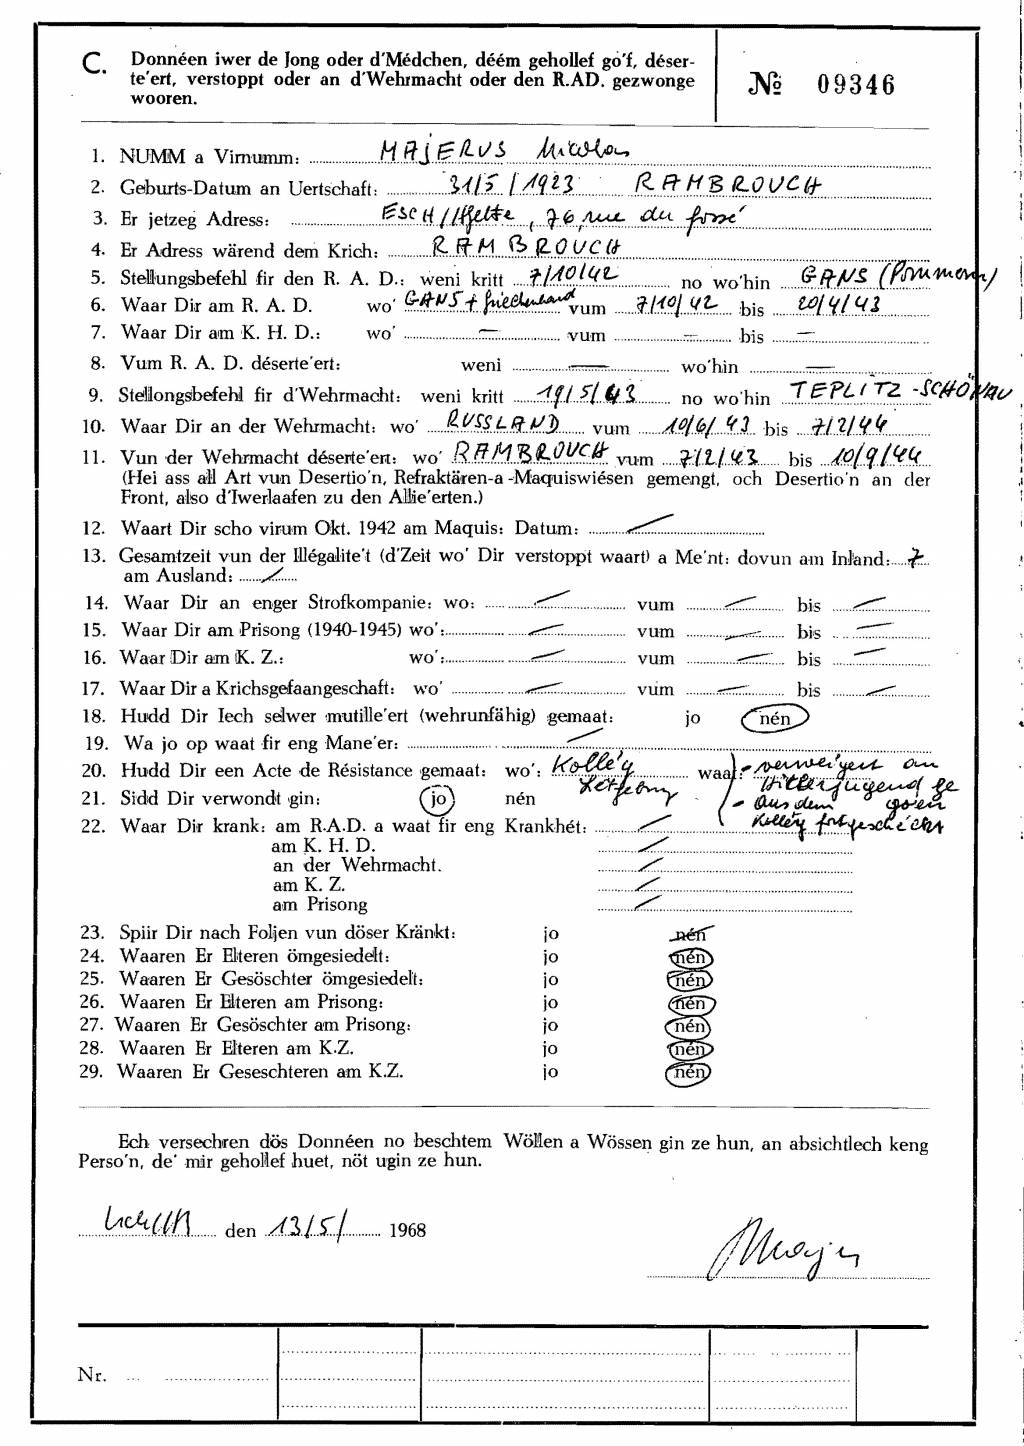 C. Donnéen iwer de Jong oder d'Médchen, déém gehollef go'f, déser-
te'ert, verstoppt oder an d'Wehrmacht oder den R.AD. gezwonge
wooren.
№ 09346
1. NUMM a Virnumm: MAJERUS Nicolas
2. Geburts-Datum an Uertschaft: 31/5/1923 RAMBROUCH
3. Er jetzeg Adress: ESCH/Alzette, 76, rue du fossé
4. Er Adress wärend dem Krich: RAMBROUCH
5. Stellungsbefehl fir den R. A. D.: weni kritt 7/10/42 no wo'hin GANS (Pommern)
6. Waar Dir am R. A. D. wo' GANS + Griechenland vum 7/10/42 bis 20/4/43
7. Waar Dir am K. H. D.: wo' — vum — bis —
8. Vum R. A. D. déserte'ert: weni — wo'hin —
9. Stellongsbefehl fir d'Wehrmacht: weni kritt 19/5/43 no wo'hin TEPLITZ-SCHÖNAU
10. Waar Dir an der Wehrmacht: wo' RUSSLAND vum 10/6/43 bis 7/2/44
11. Vun der Wehrmacht déserte'ert: wo' RAMBROUCH vum 7/2/43 bis 10/9/44
(Hei ass all Art vun Desertio'n, Refraktären-a-Maquiswiésen gemengt, och Desertio'n an der
Front, also d'Iwerlaafen zu den Allie'erten.)
12. Waart Dir scho virum Okt. 1942 am Maquis: Datum: —
13. Gesamtzeit vun der Illégalite't (d'Zeit wo' Dir verstoppt waart) a Me'nt: dovun am Inland: 7
am Ausland: —
14. Waar Dir an enger Strofkompanie: wo: — vum — bis —
15. Waar Dir am Prisong (1940-1945) wo': — vum — bis —
16. Waar Dir am K. Z.: wo': — vum — bis —
17. Waar Dir a Krichsgefaangeschaft: wo' — vum — bis —
18. Hudd Dir Iech selwer mutille'ert (wehrunfähig) gemaat: jo nén
19. Wa jo op waat fir eng Mane'er: —
20. Hudd Dir een Acte de Résistance gemaat: wo': Kolle'g Letzeburg waat: - verweigert an
Hitlerjugend ge
go'en
- aus dem
Kolle'g fortgeschéckt
21. Sidd Dir verwondt gin: jo nén
22. Waar Dir krank: am R.A.D. a waat fir eng Krankhét: —
am K. H. D. —
an der Wehrmacht. —
am K. Z. —
am Prisong —
23. Spiir Dir nach Foljen vun döser Kränkt: jo nén
24. Waaren Er Elteren ömgesiedelt: jo nén
25. Waaren Er Gesöschter ömgesiedelt: jo nén
26. Waaren Er Elteren am Prisong: jo nén
27. Waaren Er Gesöschter am Prisong: jo nén
28. Waaren Er Elteren am K.Z. jo nén
29. Waaren Er Geseschteren am K.Z. jo nén
Ech versechren dös Donnéen no beschtem Wöllen a Wössen gin ze hun, an absichtlech keng
Perso'n, de' mir gehollef huet, nöt ugin ze hun.
den 13/5/ 1968
Nr.